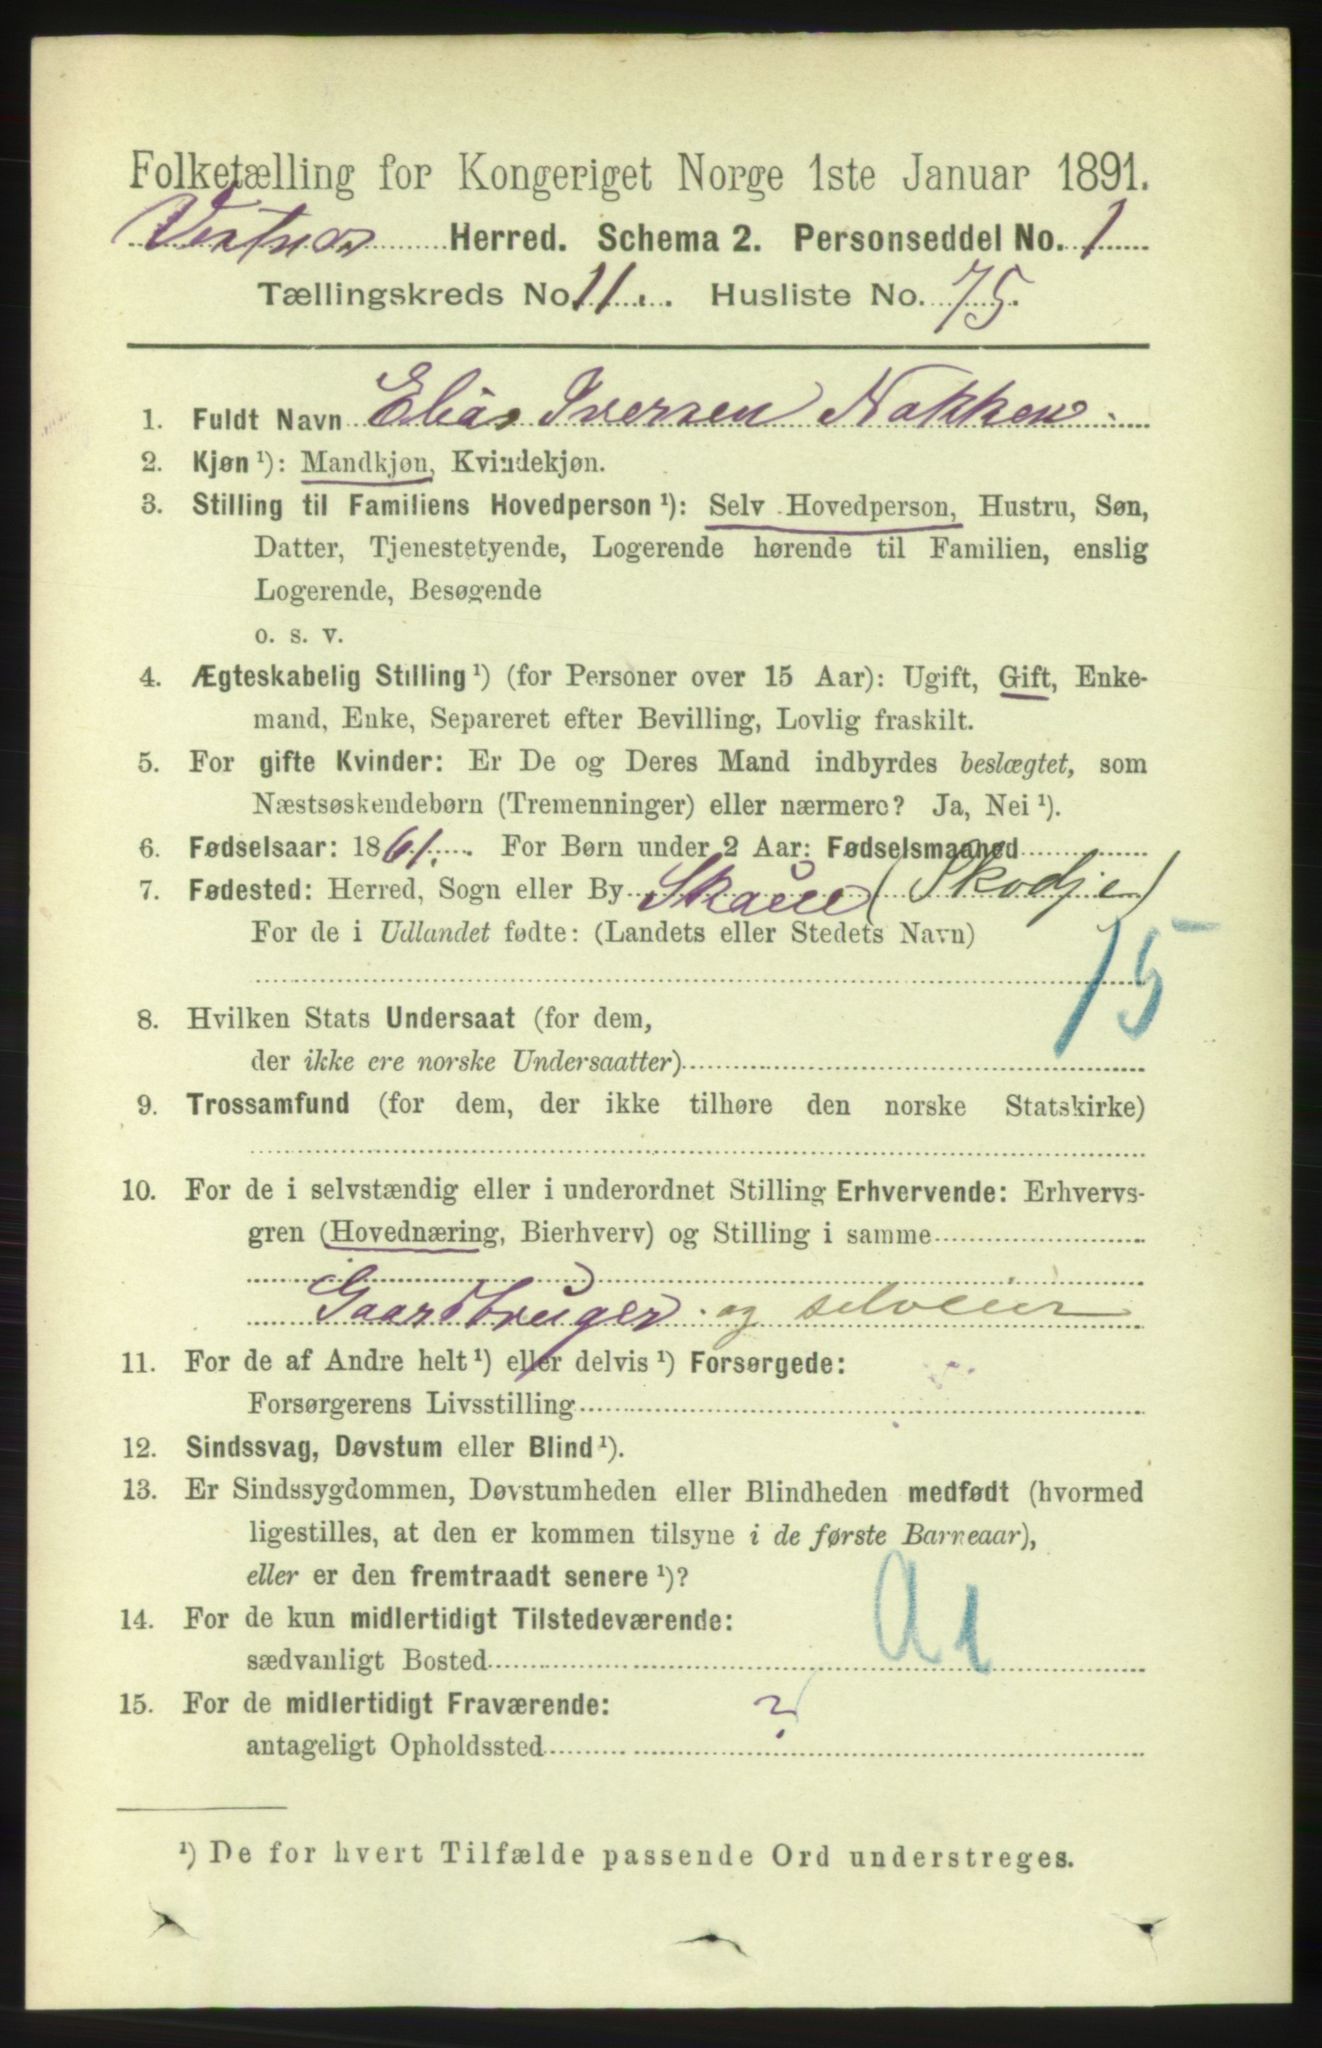 Folketælling for Kongeriget Norge 1ste Januar 1891.
Vestnes Herred. Schema 2. Personseddel No. 1
Tællingskreds No. 11. Husliste No. 75.
1. Fuldt Navn Elias Iversen Nakken.
2. Kjøn ¹): Mandkjøn, Kvindekjøn.
3. Stilling til Familiens Hovedperson ¹): Selv Hovedperson, Hustru, Søn,
Datter, Tjenestetyende, Logerende hørende til Familien, enslig
Logerende, Besøgende
o. s. v.
4. Ægteskabelig Stilling ¹) (for Personer over 15 Aar): Ugift, Gift, Enke-
mand, Enke, Separeret efter Bevilling, Lovlig fraskilt.
5. For gifte Kvinder: Er De og Deres Mand indbyrdes beslægtet, som
Næstsøskendebørn (Tremenninger) eller nærmere? Ja, Nei ¹).
6. Fødselsaar: 1861. For Børn under 2 Aar: Fødselsmaaned
7. Fødested: Herred, Sogn eller By Skaue (Skodje)
For de i Udlandet fødte: (Landets eller Stedets Navn)
15
8. Hvilken Stats Undersaat (for dem,
der ikke ere norske Undersaatter)
9. Trossamfund (for dem, der ikke tilhøre den norske Statskirke)
10. For de i selvstændig eller i underordnet Stilling Erhvervende: Erhvervs-
gren (Hovednæring, Bierhverv) og Stilling i samme
Gaardbruger og selveier
11. For de af Andre helt ¹) eller delvis ¹) Forsørgede:
Forsørgerens Livsstilling
12. Sindssvag, Døvstum eller Blind ¹).
13. Er Sindssygdommen, Døvstumheden eller Blindheden medfødt (hvormed
ligestilles, at den er kommen tilsyne i de første Barneaar),
eller er den fremtraadt senere ¹)?
a1
14. For de kun midlertidigt Tilstedeværende:
sædvanligt Bosted
15. For de midlertidigt Fraværende: ?
antageligt Opholdssted
¹) De for hvert Tilfælde passende Ord understreges.